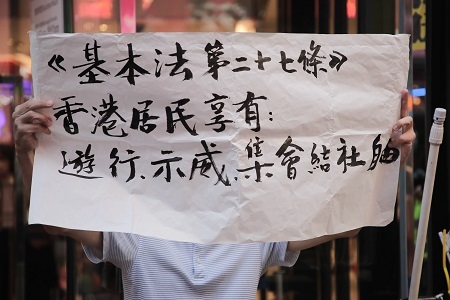 《基本法第二十七條》
香港居民享有:
遊行、示威、集會結社自由